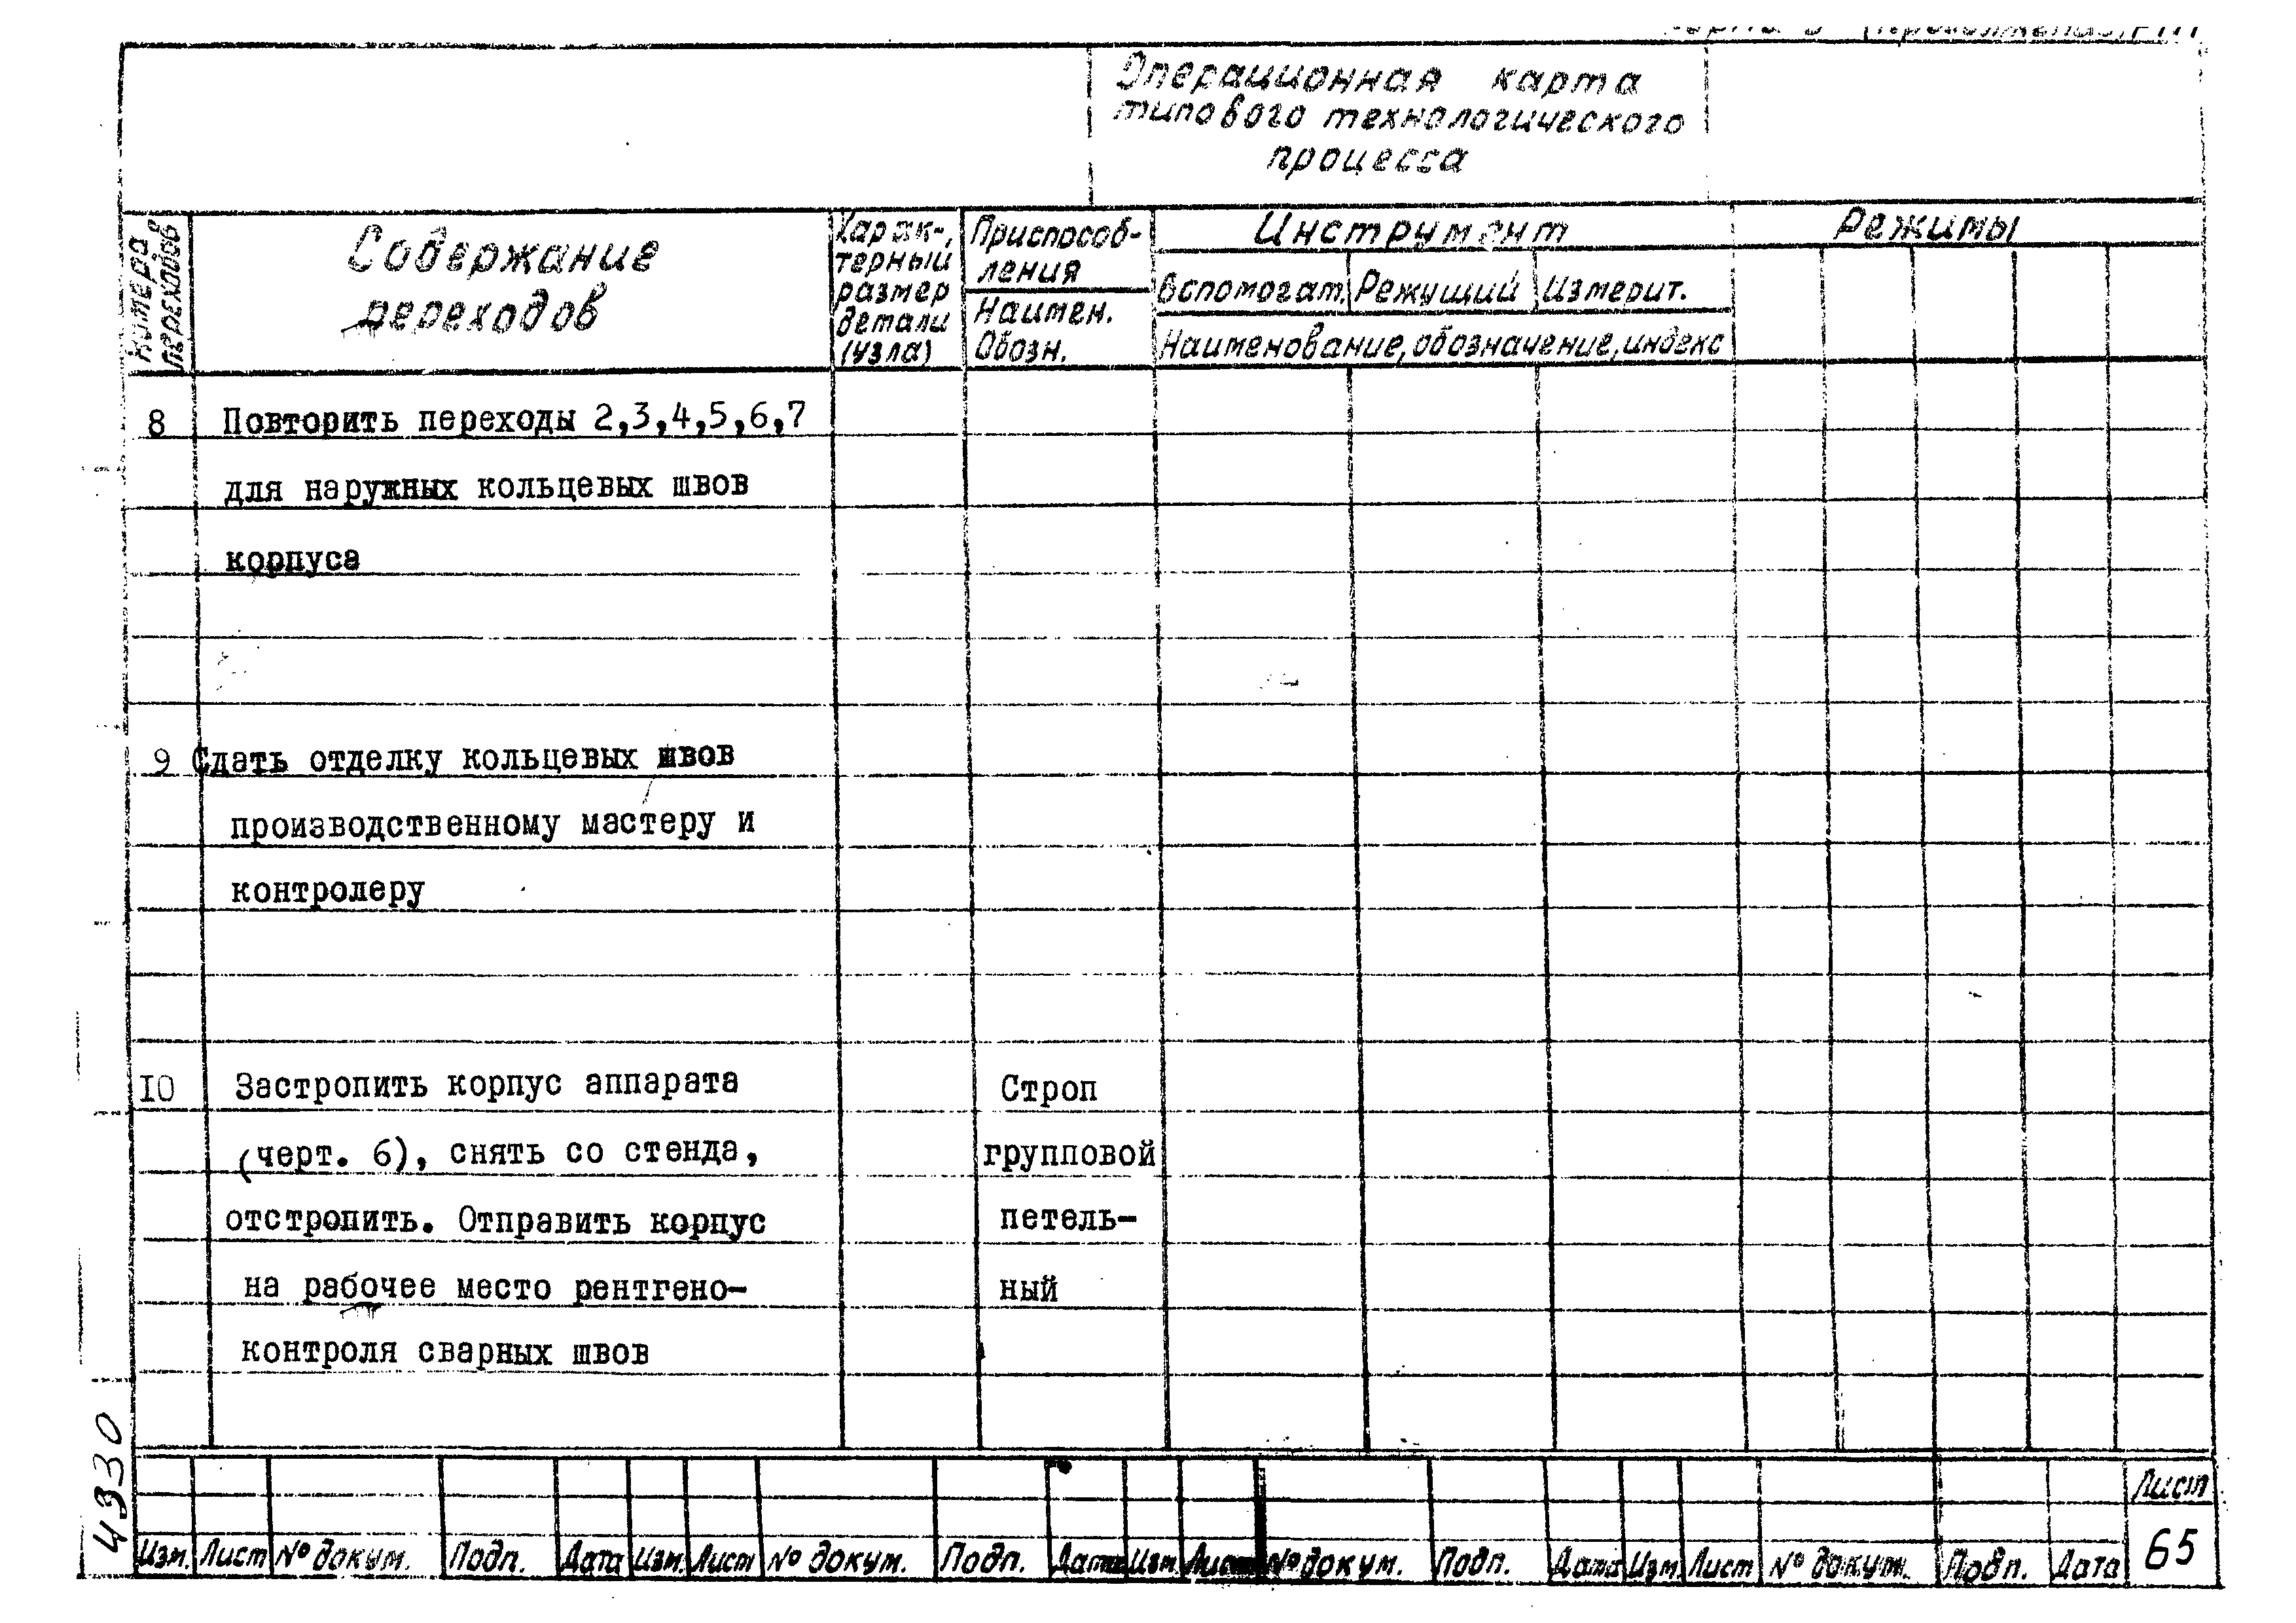 Операционная карта
типового технологического
процесса
Номера
переходов
Содержание
переходов
Харак-
терный
размер
детали
(узла)
Приспособ-
ления
Наимен.
Обозн.
Инструмент
Вспомогат. Режущий Измерит.
Наименование, обозначение, индекс
Режимы
8 Повторить переходы 2,3,4,5,6,7
для наружных кольцевых швов
корпуса
9 Сдать отделку кольцевых швов
производственному мастеру и
контролеру
10 Застропить корпус аппарата Строп
(черт. 6), снять со стенда, групповой
отстропить. Отправить корпус петель-
на рабочее место рентгено- ный
контроля сварных швов
4330
Изм. Лист № докум. Подп. Дата Изм. Лист № докум. Подп. Дата Изм. Лист № докум. Подп. Дата Изм. Лист № докум. Подп. Дата
Лист
65